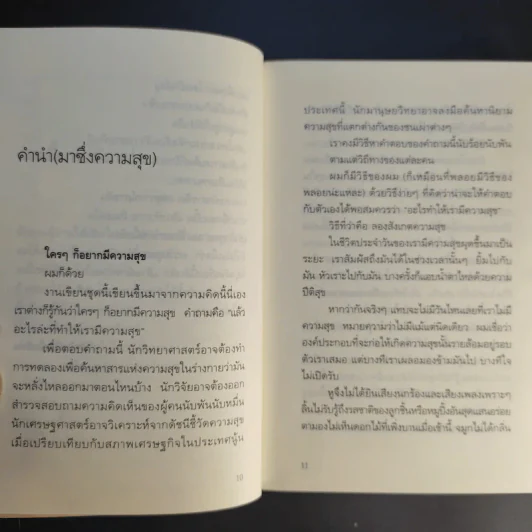 คำนำ(มาซึ่งความสุข)
ใครๆ ก็อยากมีความสุข
ผมก็ด้วย
งานเขียนชุดนี้เขียนขึ้นมาจากความคิดนี้นี่เอง
เราต่างก็รู้กันว่าใครๆ ก็อยากมีความสุข คำถามคือ "แล้ว
อะไรล่ะที่ทำให้เรามีความสุข"
เพื่อตอบคำถามนี้ นักวิทยาศาสตร์อาจต้องทำ
การทดลองเพื่อค้นหาสารแห่งความสุขในร่างกายว่ามัน
จะหลั่งไหลออกมาตอนไหนบ้าง นักวิจัยอาจต้องออก
สำรวจสอบถามความคิดเห็นของผู้คนนับพันนับหมื่น
นักเศรษฐศาสตร์อาจวิเคราะห์จากดัชนีชี้วัดความสุข
เมื่อเปรียบเทียบกับสภาพเศรษฐกิจในประเทศนั้น
10
ประเทศนี้ นักมานุษยวิทยาอาจลงมือค้นหานิยาม
ความสุขที่แตกต่างกันของชนเผ่าต่างๆ
เราคงมีวิธีหาคำตอบของคำถามนี้นับร้อยนับพัน
ตามแต่วิถีทางของแต่ละคน
ผมก็มีวิธีของผม (ก็เหมือนที่พลอยมีวิธีของ
พลอยน่ะแหละ) ด้วยวิธีง่ายๆ ที่คิดว่าน่าจะให้คำตอบ
กับตัวเองได้พอสมควรว่า "อะไรทำให้เรามีความสุข"
วิธีที่ว่าคือ ลองสังเกตความสุข
ในชีวิตประจำวันของเรามีความสุขผุดขึ้นมาเป็น
ระยะ เราสัมผัสถึงมันได้ในช่วงเวลานั้นๆ ยิ้มไปกับ
มัน หัวเราะไปกับมัน บางครั้งก็แอบน้ำตาไหลด้วยความ
ปีติสุข
หากว่ากันจริงๆ แทบจะไม่มีวันไหนเลยที่เราไม่มี
ความสุข หมายความว่าไม่มีแม้แต่นิดเดียว ผมเชื่อว่า
องค์ประกอบที่จะก่อให้เกิดความสุขนั้นรายล้อมอยู่รอบ
ตัวเราเสมอ แต่บางทีเราเผลอมองข้ามมันไป บางทีใจ
ไม่เปิดรับ
หูจึงไม่ได้ยินเสียงนกร้องและเสียงเพลงเพราะๆ
ลิ้นไม่รับรู้ถึงรสชาติของลูกชิ้นหรือหมูปิ้งอันสุดแสนอร่อย
ตามองไม่เห็นดอกไม้ที่เพิ่งบานเมื่อเช้านี้ จมูกไม่ได้กลิ่น
11